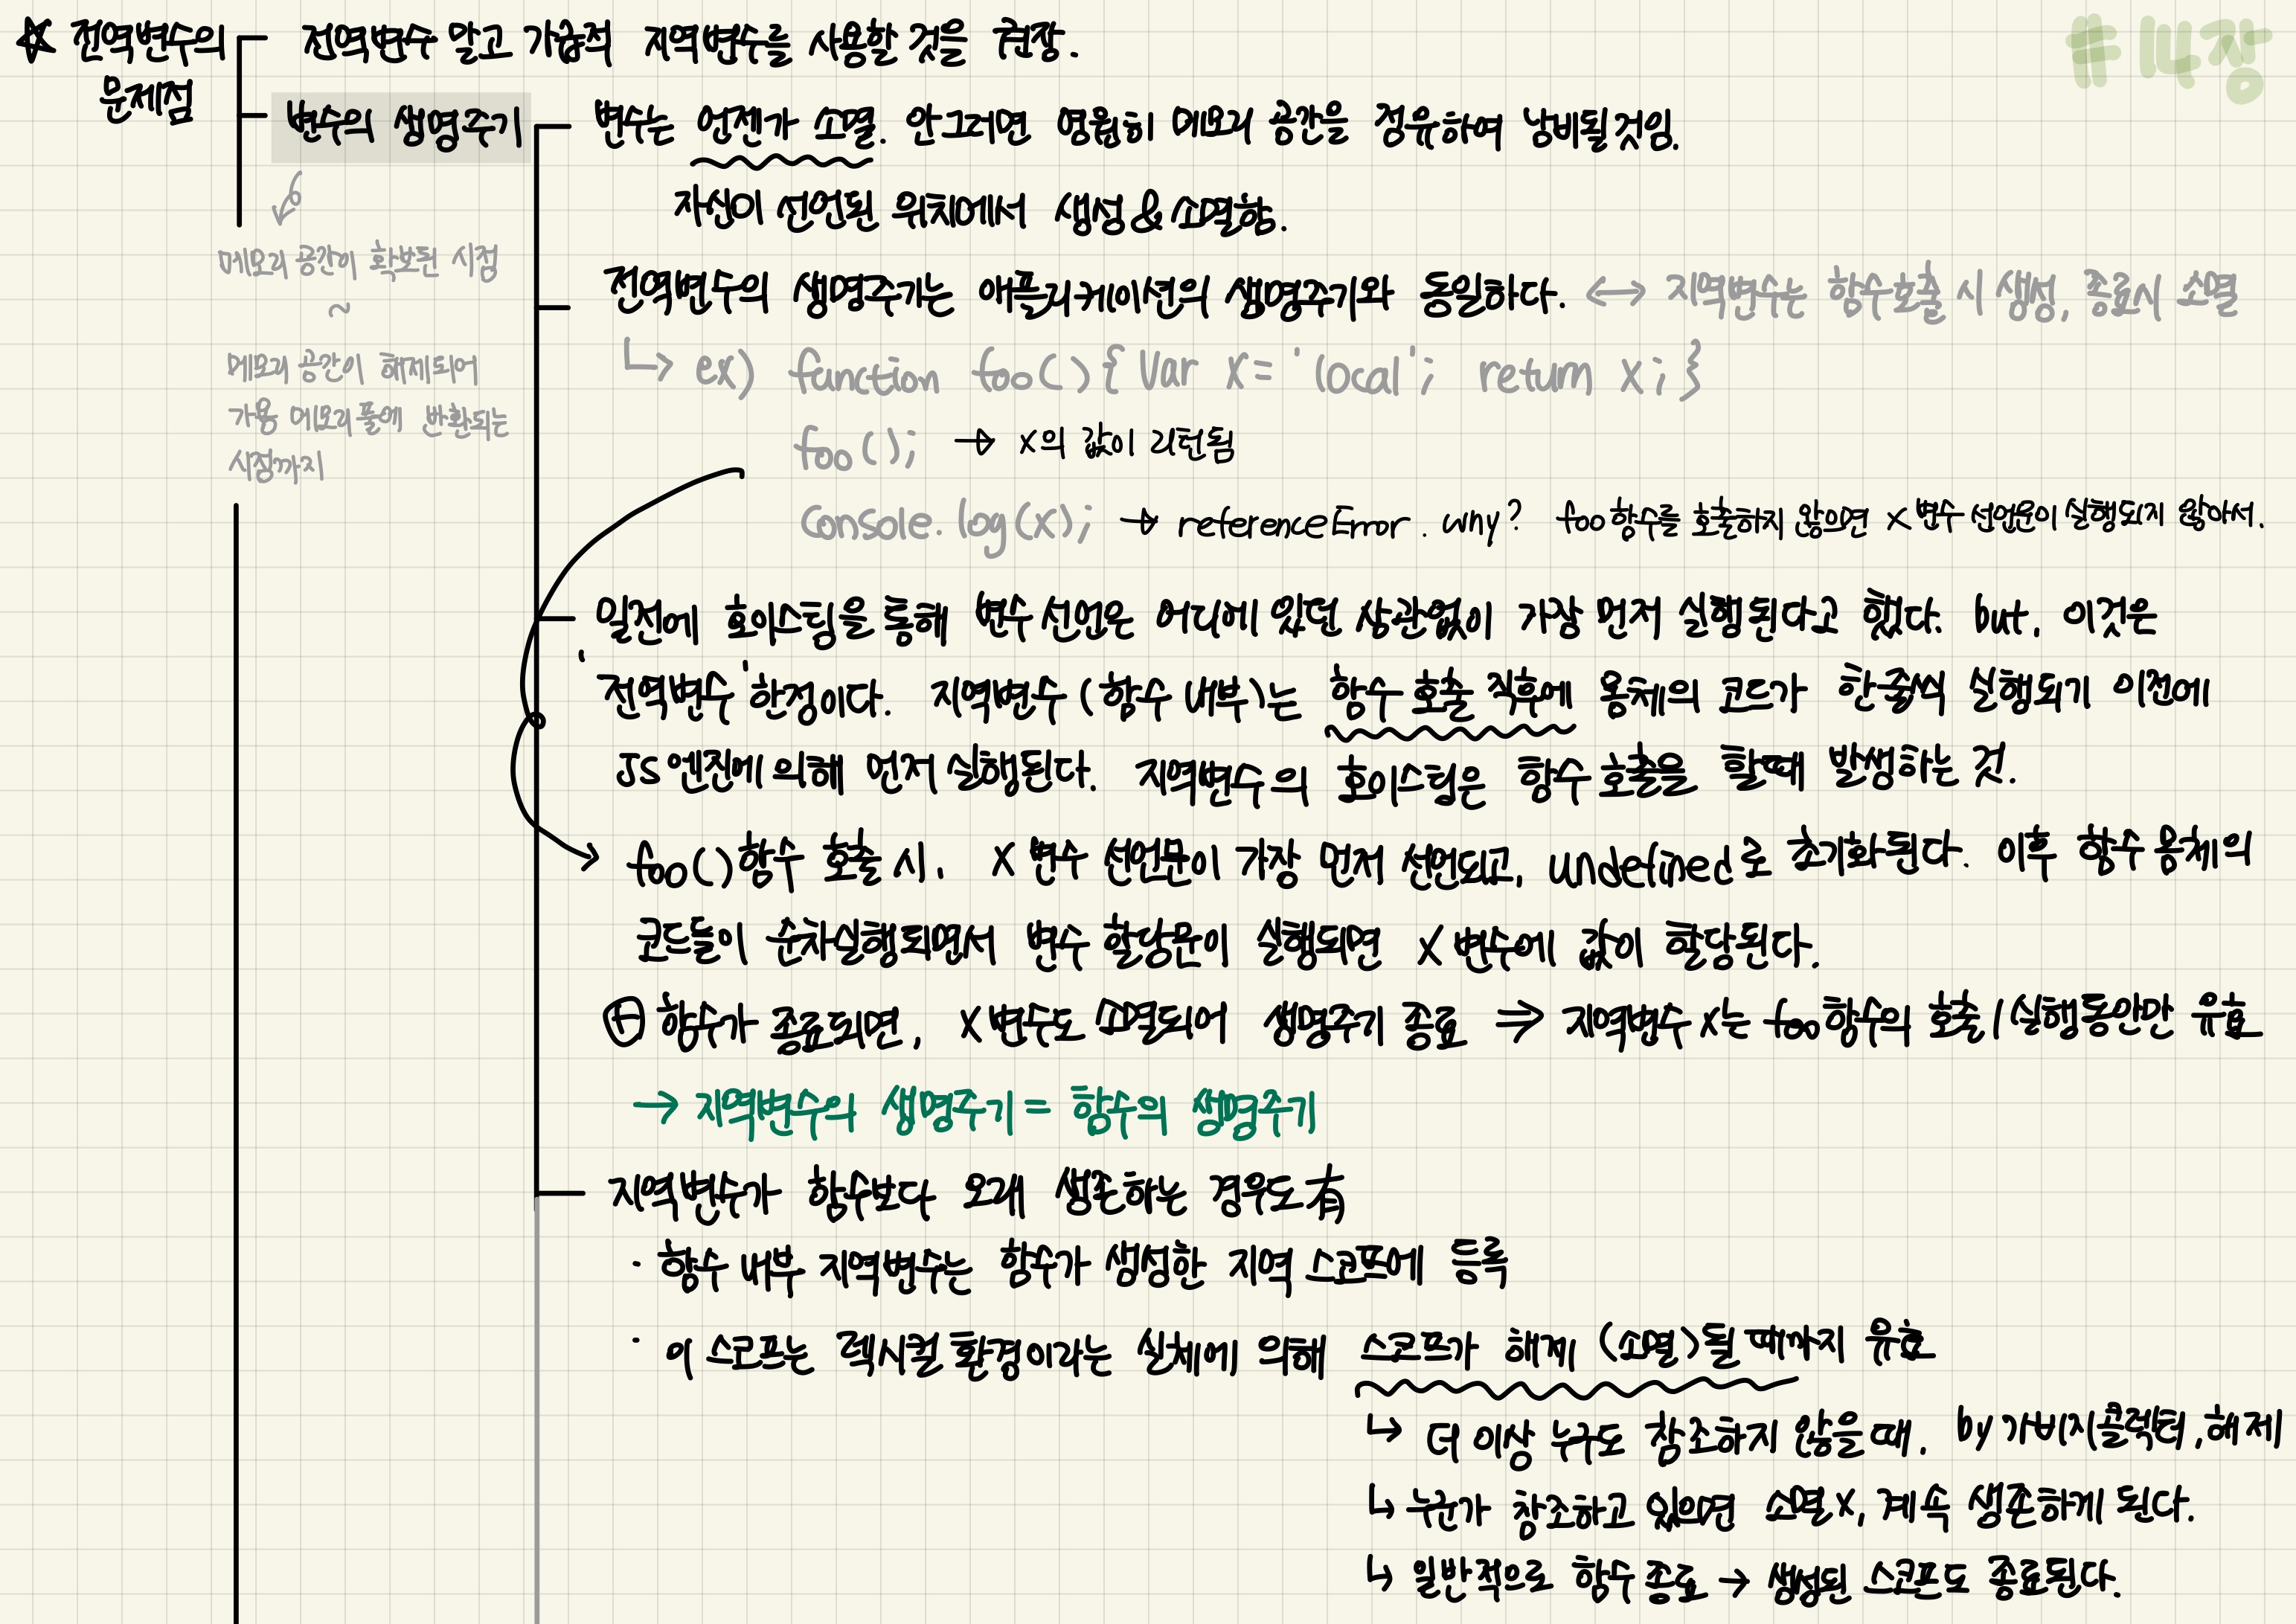 #14장
☆ 전역변수의 문제점
전역변수 말고 가급적 지역변수를 사용할 것을 권장.
변수의 생명주기
메모리 공간이 확보된 시점
~
메모리 공간이 해제되어
가용 메모리 풀에 반환되는
시점까지
변수는 언젠가 소멸. 안그러면 영원히 메모리 공간을 점유하여 낭비될것임.
자신이 선언된 위치에서 생성 & 소멸함.
전역변수의 생명주기는 애플리케이션의 생명주기와 동일하다. ↔ 지역변수는 함수호출 시 생성, 종료시 소멸
↳ ex) function foo() { var x = 'local'; return x; }
foo(); → x의 값이 리턴됨
console.log(x); → referenceError. why? foo 함수를 호출하지 않으면 x 변수 선언문이 실행되지 않아서.
일전에 호이스팅을 통해 변수 선언은 어디에 있던 상관없이 가장 먼저 실행된다고 했다. but, 이것은
'전역변수' 한정이다. 지역변수 (함수 내부)는 함수 호출 직후에 몸체의 코드가 한줄씩 실행되기 이전에
JS 엔진에 의해 먼저 실행된다. 지역변수의 호이스팅은 함수 호출을 할때 발생하는 것.
foo() 함수 호출 시, x 변수 선언문이 가장 먼저 선언되고, undefined로 초기화된다. 이후 함수 몸체의
코드들이 순차실행되면서 변수 할당문이 실행되면 x 변수에 값이 할당된다.
⊕ 함수가 종료되면, x변수도 소멸되어 생명주기 종료 ⇒ 지역변수 x는 foo함수의 호출/실행동안만 유효
→ 지역변수의 생명주기 = 함수의 생명주기
지역변수가 함수보다 오래 생존하는 경우도 有
· 함수 내부 지역변수는 함수가 생성한 지역 스코프에 등록
· 이 스코프는 렉시컬 환경이라는 실체에 의해 스코프가 해제 (소멸)될 때까지 유효
↳ 더 이상 누구도 참조하지 않을때, by 가비지콜렉터, 해제
↳ 누군가 참조하고 있으면 소멸x, 계속 생존하게 된다.
↳ 일반적으로 함수 종료 → 생성된 스코프도 종료된다.